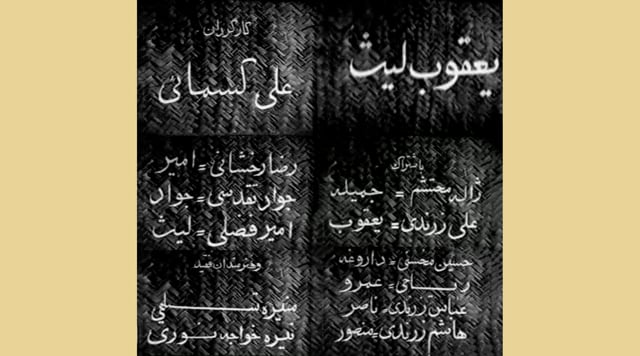 یعقوب لیث
کارگردان
علی کسمائی
باشتراک
ژاله محتشم = جمیله
علی زرندی = یعقوب
حسین محسنی = داروغه
ریاحی = عمرو
عباس زرندی = ناصر
هاشم زرندی = منصور
رضا رخشانی = امیر
جواد تقدسی = جواد
امیر فضلی = لیث
و هنرمندان فقید
منیره تسلیمی
نیره خواجه نوری